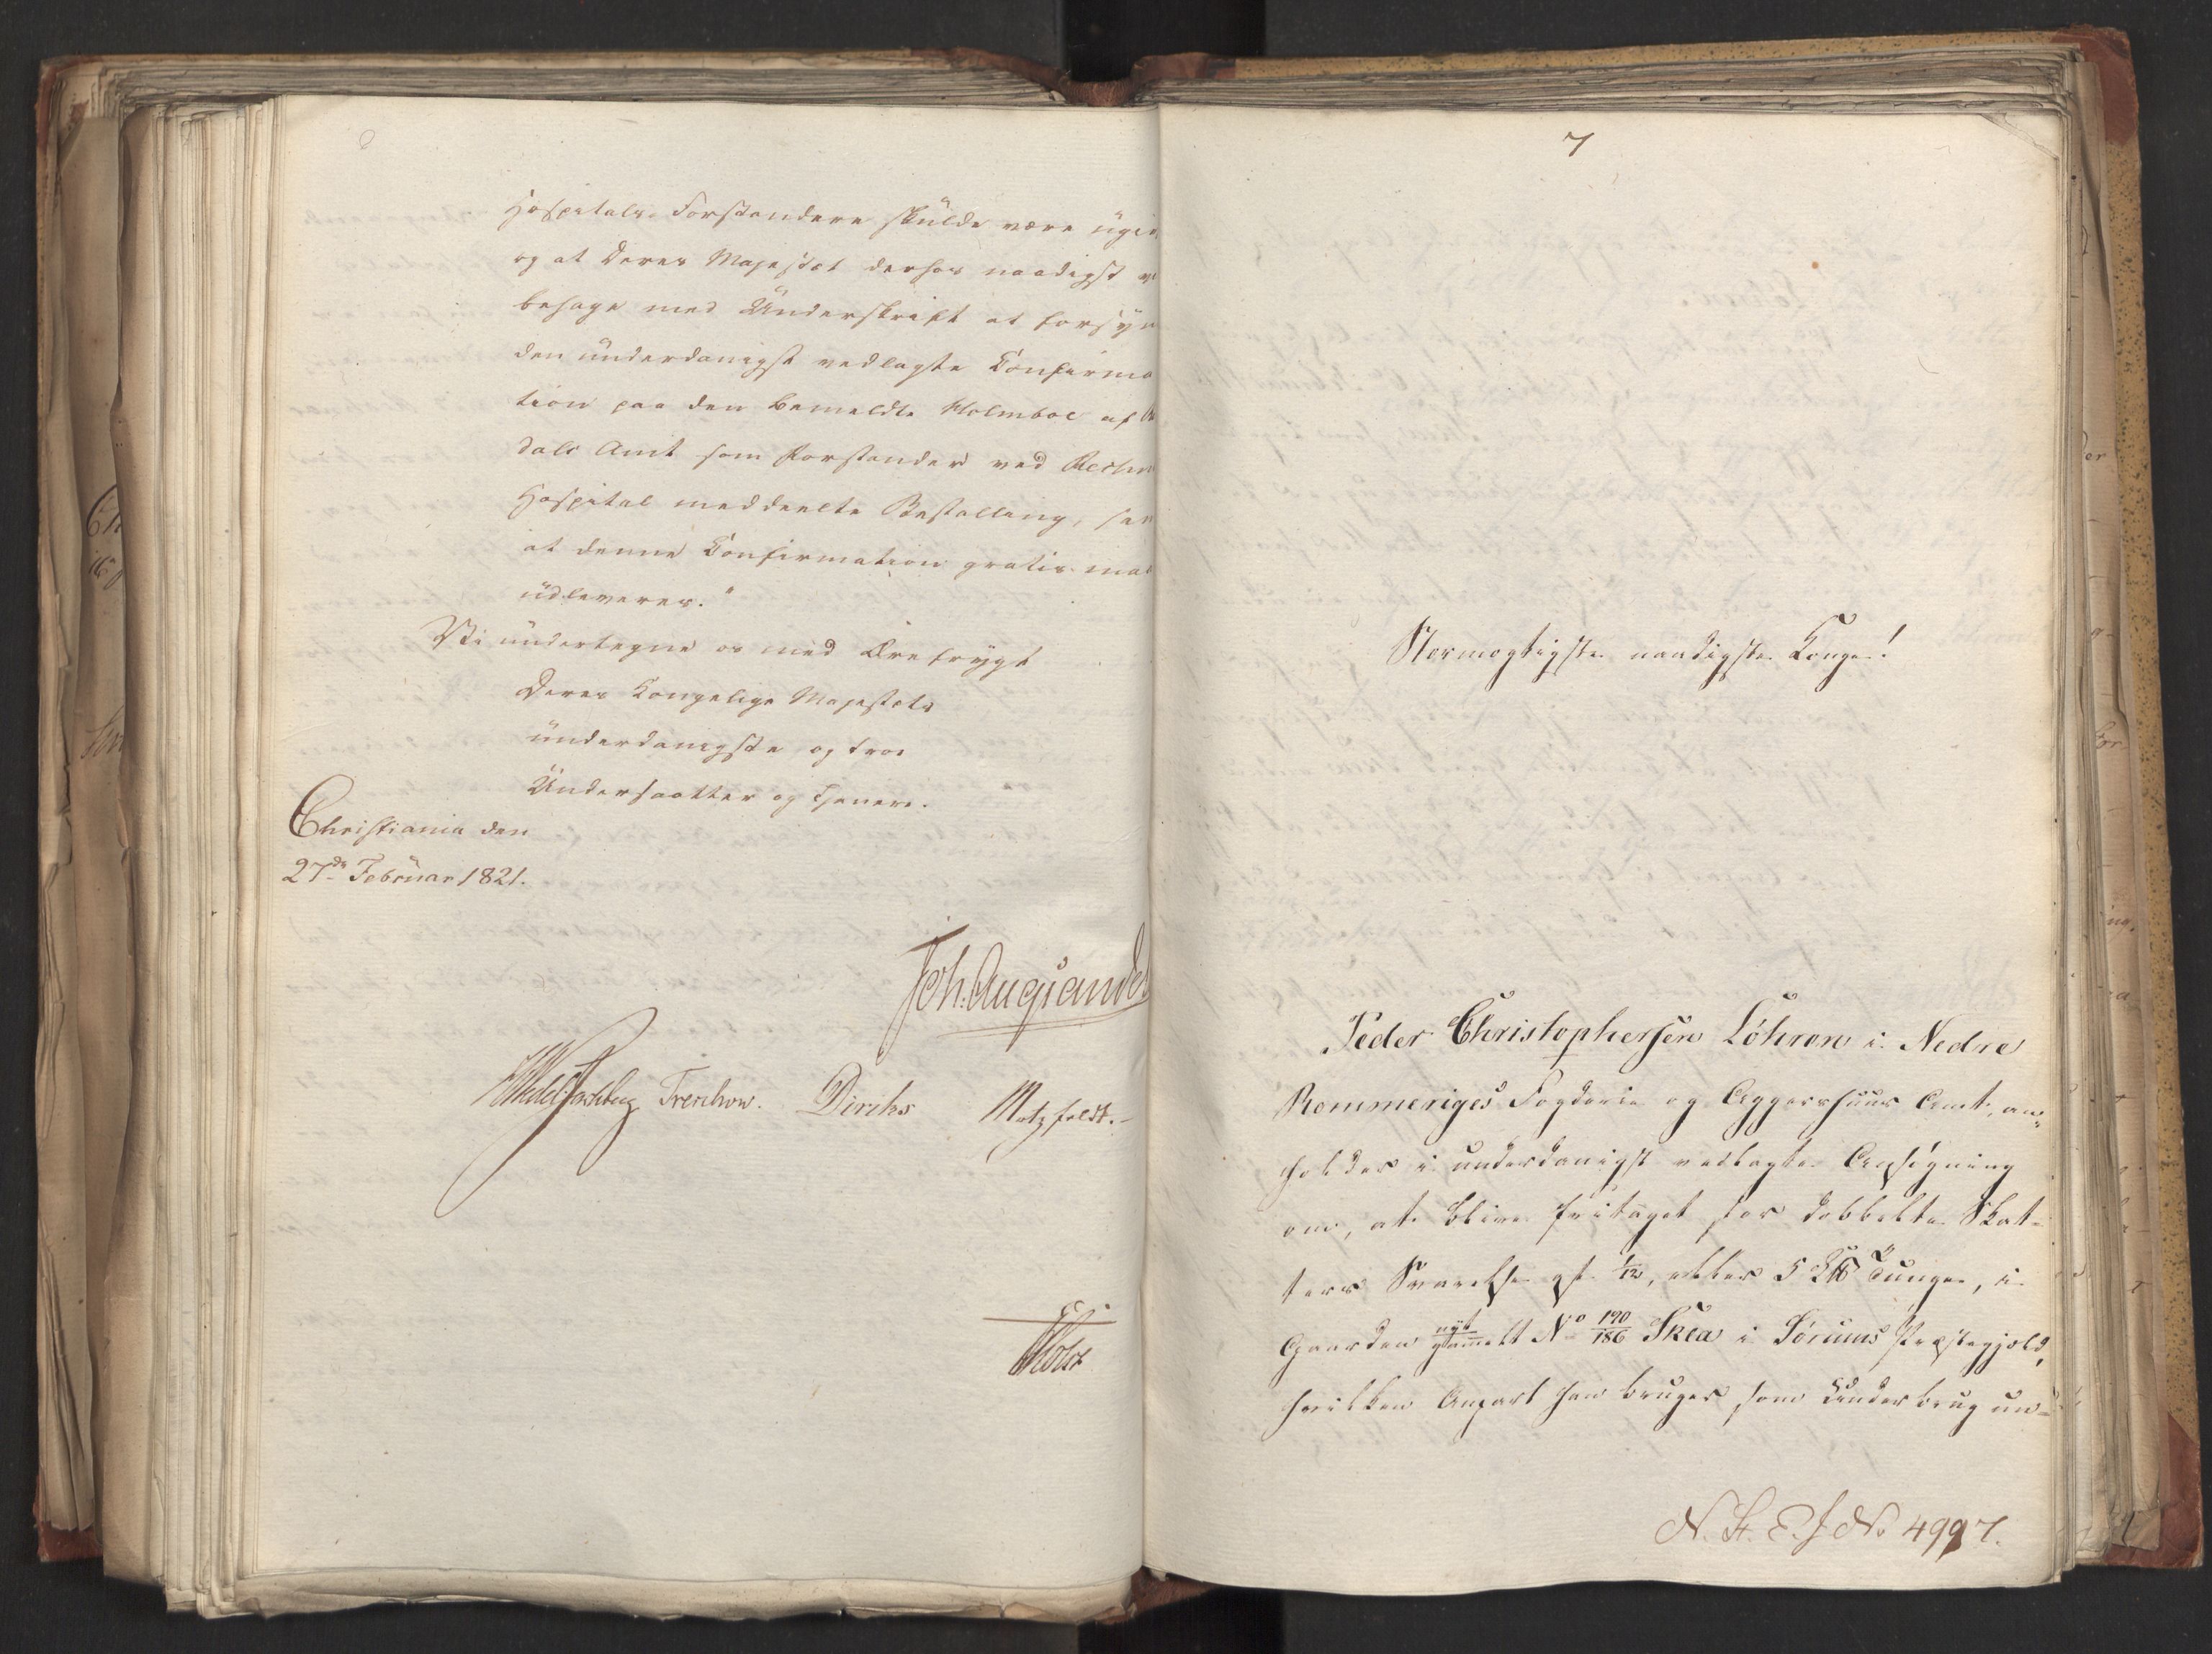 Hospitals-Forstandere skulde være
og at Deres Majestæt derhos naadigst
behage med Underskrift at forsyn
den underdanigst vedlagte Confirma
tion paa den bemeldte Holmboe af
dals Amt som Forstander ved
Hospital meddeelte Bestalling, sa
at denne Confirmation gratis maa
udleveres."
Vi undertegne os med Ærefrygt
Deres Kongelige Majestæts
underdanigste og troe
Undersaatter og Tjenere.
Christiania den
27de Februar 1821.
Joh. Aug Sandel
Treschow. Diriks Motzfeldt.
Holst
7
Stormægtigste naadigste Konge!
Peder Christophersen Löhren i Nedre
Rommeriges Fogderie og Aggershuus Amt, an=
holder i underdanigst vedlagte Ansøgning
om, at blive fritaget for dobbelte Skat-
ters Svarelse af 1/12, eller 5 Tunge, i
Gaarden nyt gammelt No 190/186 Skea i Sørums Præstegjeld,
hvilken Anpart han bruger som Underbrug un-
N. St. E. J No 4997.